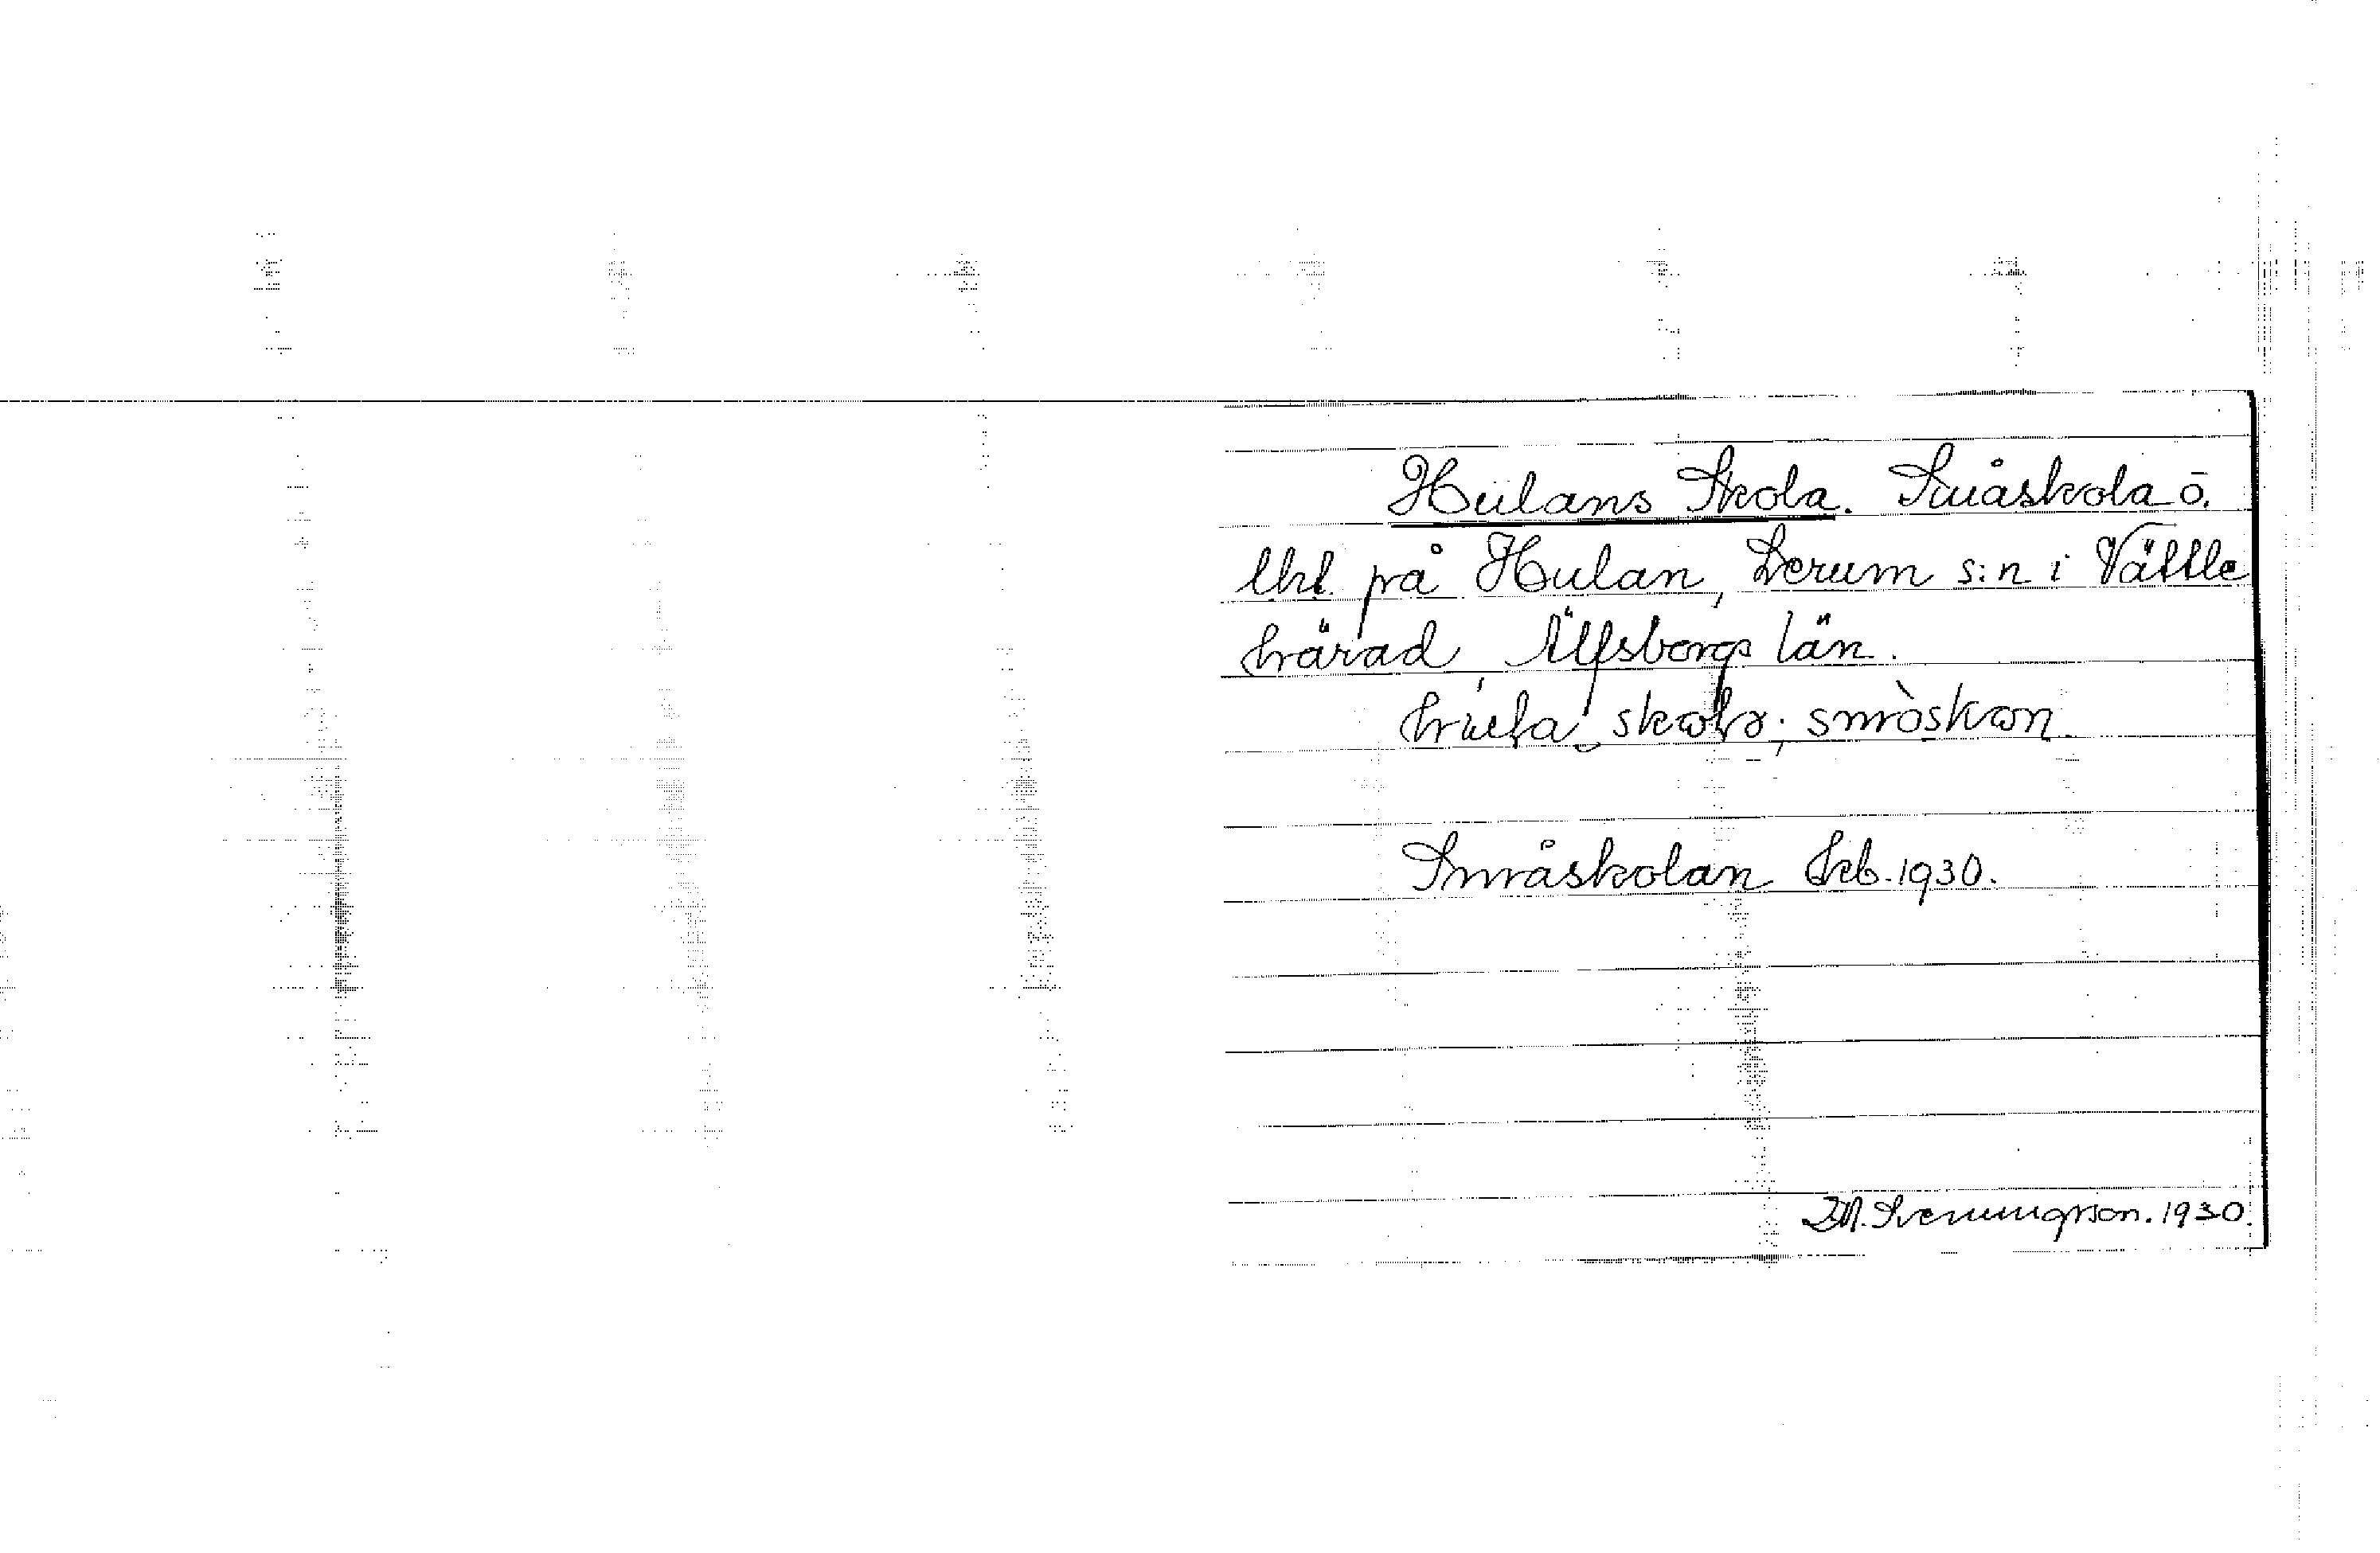 Hulans Skola. Småskola o.
lht på Hulan, Lerum s:n i Vättle
härad, Älfsborgs län.
småskon
Småskolan Ekb. 1930.
D.A. Svenungsson. 1930.